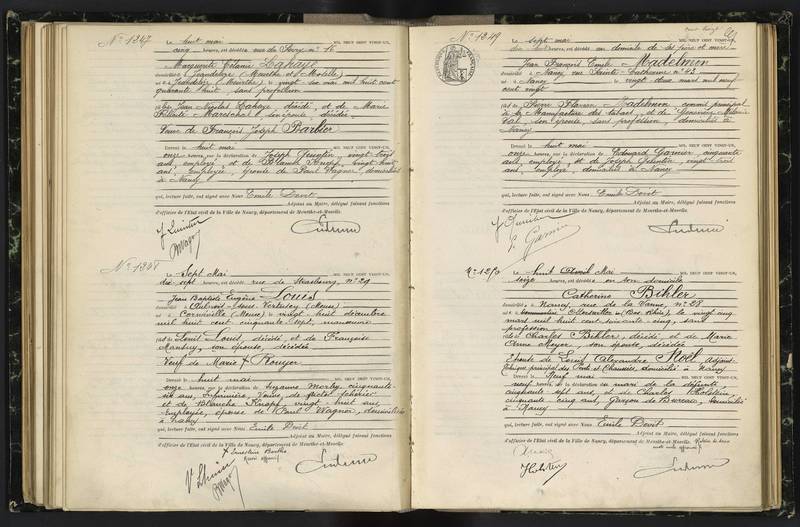 No 1347
Le huit mai MIL NEUF CENT VINGT-UN,
cinq heures, est décédée rue de Serre no 16
Marguerite Mélanie Lahaye
domiciliée à Jeandelize (Meurthe et Moselle)
née à Jeandelize (Meurthe) le vingt six mai mil huit cent
quarante huit, sans profession
fille de Jean Nicolas Lahaye, décédé, et de Marie
Maréchal, son épouse, décédée
Veuve de François Joseph Barbier
Dressé le huit mai MIL NEUF CENT VINGT-UN,
onze heures, sur la déclaration de Joseph Quentin, vingt trois
ans, employé, et de Blanche Knopf, vingt huit
ans, employée, épouse de Paul Wagner, domiciliés
à Nancy
qui, lecture faite, ont signé avec Nous Emile Devit
Adjoint au Maire, délégué faisant fonctions
d'officier de l'Etat civil de la Ville de Nancy, département de Meurthe-et-Moselle.
No 1348
Le Sept Mai MIL NEUF CENT VINGT-UN,
dix sept heures, est décédé rue de Strasbourg, no 29
Jean Baptiste Eugène Louis
domicilié à Aulnois sous Vertuzey (Meuse)
né à Cornieville (Meuse) le vingt huit décembre
mil huit cent cinquante sept, manœuvre
fils de Louis Louis, décédé, et de Françoise
son épouse, décédée
Veuf de Marie + Rouyer
Dressé le huit mai MIL NEUF CENT VINGT-UN,
onze heures, sur la déclaration de Suzanne cinquante
six ans, infirmière, Veuve de
et de Blanche Knopf, vingt huit ans,
Employée, épouse de Paul Wagner, domiciliées
à Nancy
qui, lecture faite, ont signé avec Nous Emile Devit
Adjoint au Maire, délégué faisant fonctions
d'officier de l'Etat civil de la Ville de Nancy, département de Meurthe-et-Moselle.
No 1349
Le sept mai MIL NEUF CENT VINGT-UN,
dix huit heures, est décédé au domicile de ses père et mère
Jean François Emile Madelmon
domicilié à Nancy rue Sainte Catherine no 43
né à Nancy le vingt deux mars mil neuf
cent vingt
fils de Pierre Florian Madelmon, commis principal
à la Manufacture des tabacs, et de Geneviève
son épouse, sans profession, domiciliés à
Nancy
Dressé le huit mai MIL NEUF CENT VINGT-UN,
onze heures, sur la déclaration de Edouard Garnier, cinquante
ans, employé, et de Joseph Quentin, vingt trois
ans, employé, domiciliés à Nancy
qui, lecture faite, ont signé avec Nous Emile Devit
Adjoint au Maire, délégué faisant fonctions
d'officier de l'Etat civil de la Ville de Nancy, département de Meurthe-et-Moselle.
No 1350
Le huit Avril Mai MIL NEUF CENT VINGT-UN,
seize heures, est décédée en son domicile
Catherine Bihler
domiciliée à Nancy, rue de la no 28
née à (Bas Rhin), le vingt cinq
mars mil huit cent soixante cinq, sans
profession
fille de Charles Bihler, décédé, et de Marie
Anne Meyer, son épouse, décédée
Epouse de Louis Alexandre Noël, Adjoint
technique principal des Ponts et Chaussées, domicilié à Nancy
Dressé le neuf mai MIL NEUF CENT VINGT-UN,
neuf heures, sur la déclaration du mari de la défunte,
cinquante sept ans, et de Charles Holstein
cinquante cinq ans, garçon de Bureau, domicilié
à Nancy
qui, lecture faite, ont signé avec Nous Emile Devit
Adjoint au Maire, délégué faisant fonctions
d'officier de l'Etat civil de la Ville de Nancy, département de Meurthe-et-Moselle.